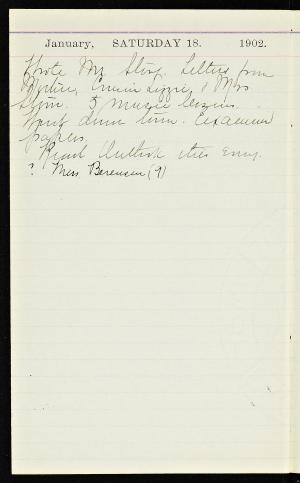 January, SATURDAY 18. 1902.
Wrote Mr Story. Letters from
Mother, Cousin Lizzie, & Mrs
5 music lessons.
Went down town. Examined
papers.
Read Outlook this Eveng.
? Miss Berenson (?)